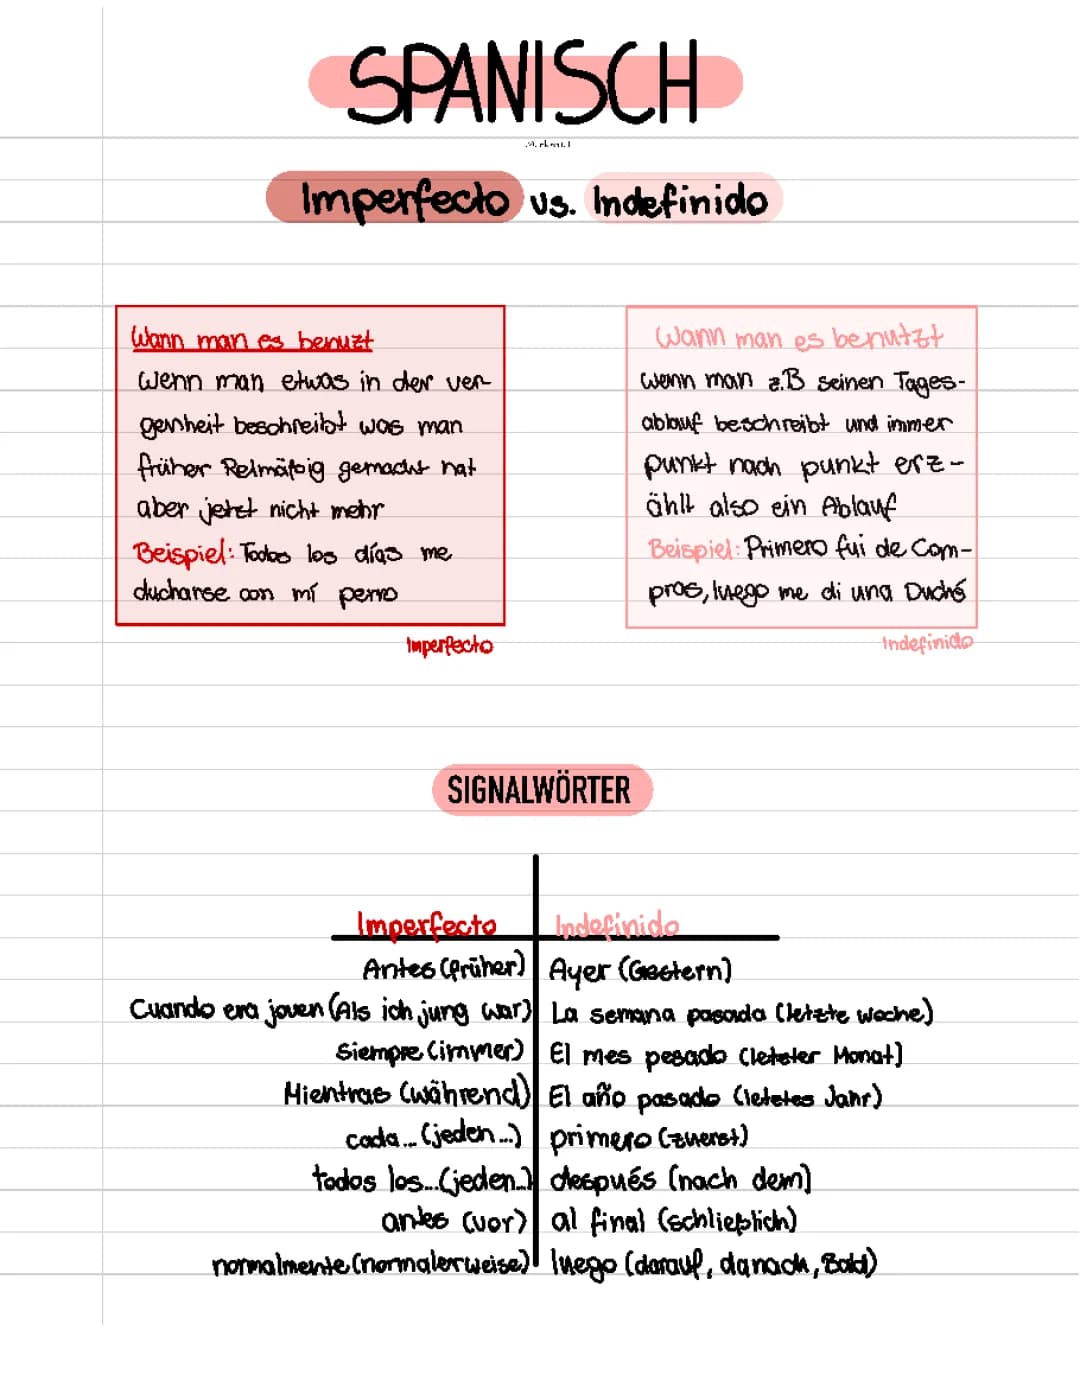 SPANISCH
Imperfecto vs. Indefinido
Wann man es benuzt
wenn man etwas in der ver-
genheit beschreibt was man
früher Relmäßig gemacht hat
aber jetzt nicht mehr
Beispiel: Todos los días me
ducharse con mí perro
Imperfecto
Wann man es benutzt
wenn man z.B seinen Tages-
ablauf beschreibt und immer
punkt nach punkt erz-
ählt also ein Ablauf
Beispiel: Primero fui de Com-
pras, luego me di una Duché
Indefinido
SIGNALWÖRTER
Imperfecto Indefinido
Antes (früher) Ayer (Gestern)
Cuando era joven (Als ich jung war) La semana pasada (letzte woche)
Siempre (immer) El mes pesado (letzter Monat)
Mientras (während) El año pasado (letztes Jahr)
cada... (jeden...) primero (zuerst)
todos los...(jeden..) después (nach dem)
antes (vor) al final (schließlich)
normalmente (normalerweise) luego (darauf, danach, Bald)